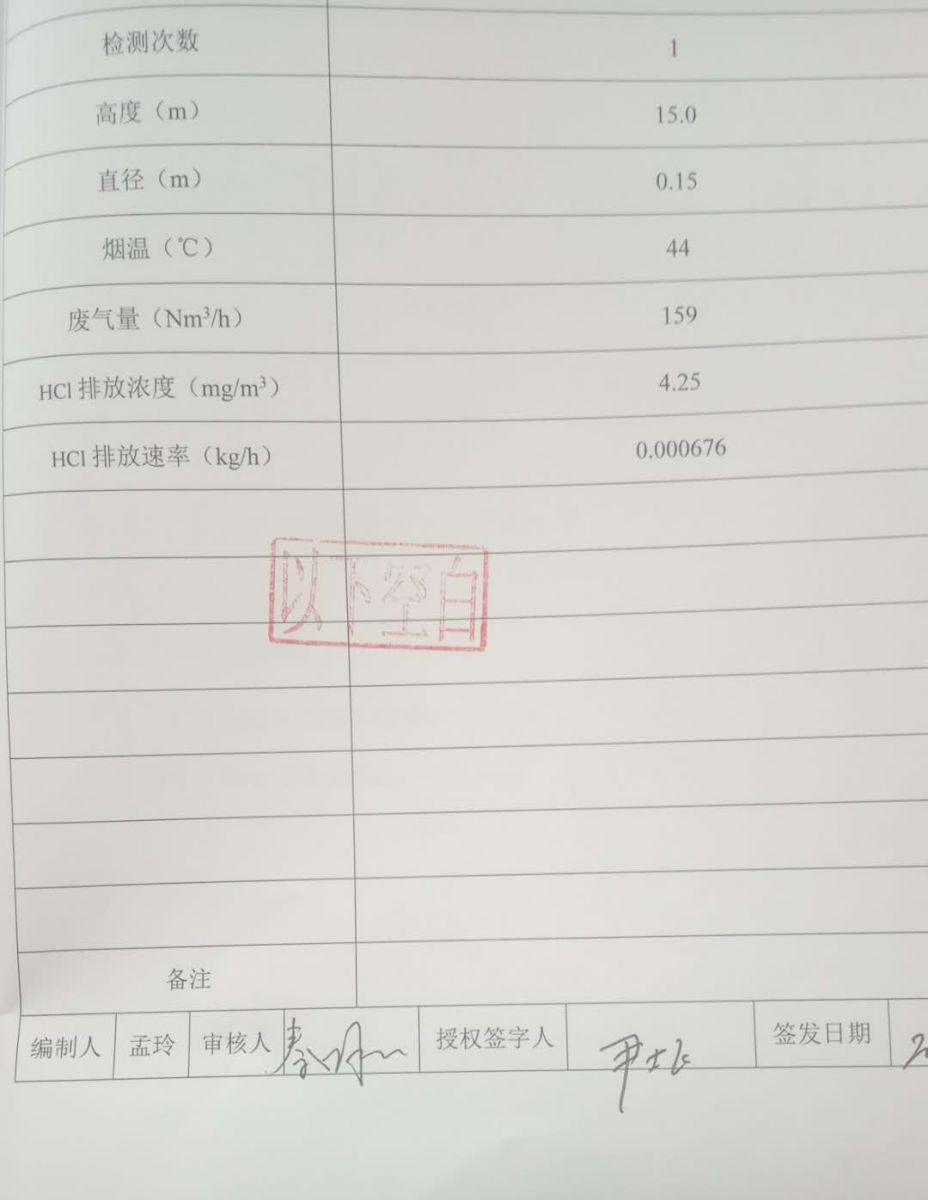 检测次数 1
高度（m） 15.0
直径（m） 0.15
烟温（℃） 44
废气量（Nm³/h） 159
HCl 排放浓度（mg/m³） 4.25
HCl 排放速率（kg/h） 0.000676
以下空白
备注
编制人 孟玲 审核人 授权签字人 签发日期